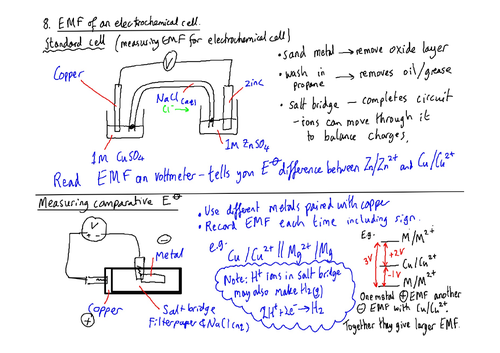 8. EMF of an electrochemical cell.
Standard cell (measuring EMF for electrochemical cell)
V
Copper
zinc
NaCl(aq)
Cl⁻ →
1M CuSO4
1M ZnSO4
• sand metal → remove oxide layer
• wash in → removes oil/grease
propane
• salt bridge – completes circuit
– ions can move through it
to balance charges.
Read EMF on voltmeter – tells you E⊖ difference between Zn/Zn²⁺ and Cu/Cu²⁺
Measuring comparative E⊖
V
+ -
⊖
Metal
Copper
⊕
Salt bridge
Filter paper & NaCl(aq)
• Use different metals paired with copper
• Record EMF each time including sign.
e.g.
Cu/Cu²⁺ || Mg²⁺/Mg
Note: H⁺ ions in salt bridge
may also make H2(g)
2H⁺+2e⁻→H2
Eg.
M/M²⁺
3V
+2V
Cu/Cu²⁺
-1V
M/M²⁺
One metal ⊕ EMF another
⊖ EMF with Cu/Cu²⁺.
Together they give larger EMF.